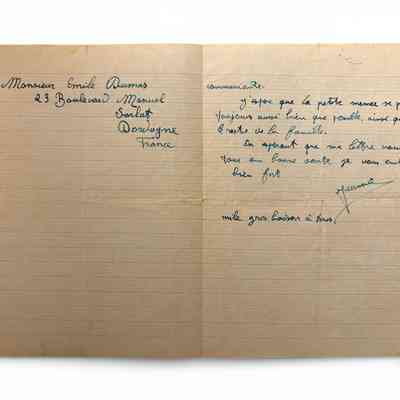 Monsieur Emile Dumas
23 Boulevard Manuel
Sarlat
Dordogne
France
commerciante.
J'espoe que la petite meme se p
toujours aussi bien que possible, ainsi que
l'reste de la famille.
En esperant que ma lettre vous
vous en bonne santé je vous em
bien fort
mile gros baison à tous.